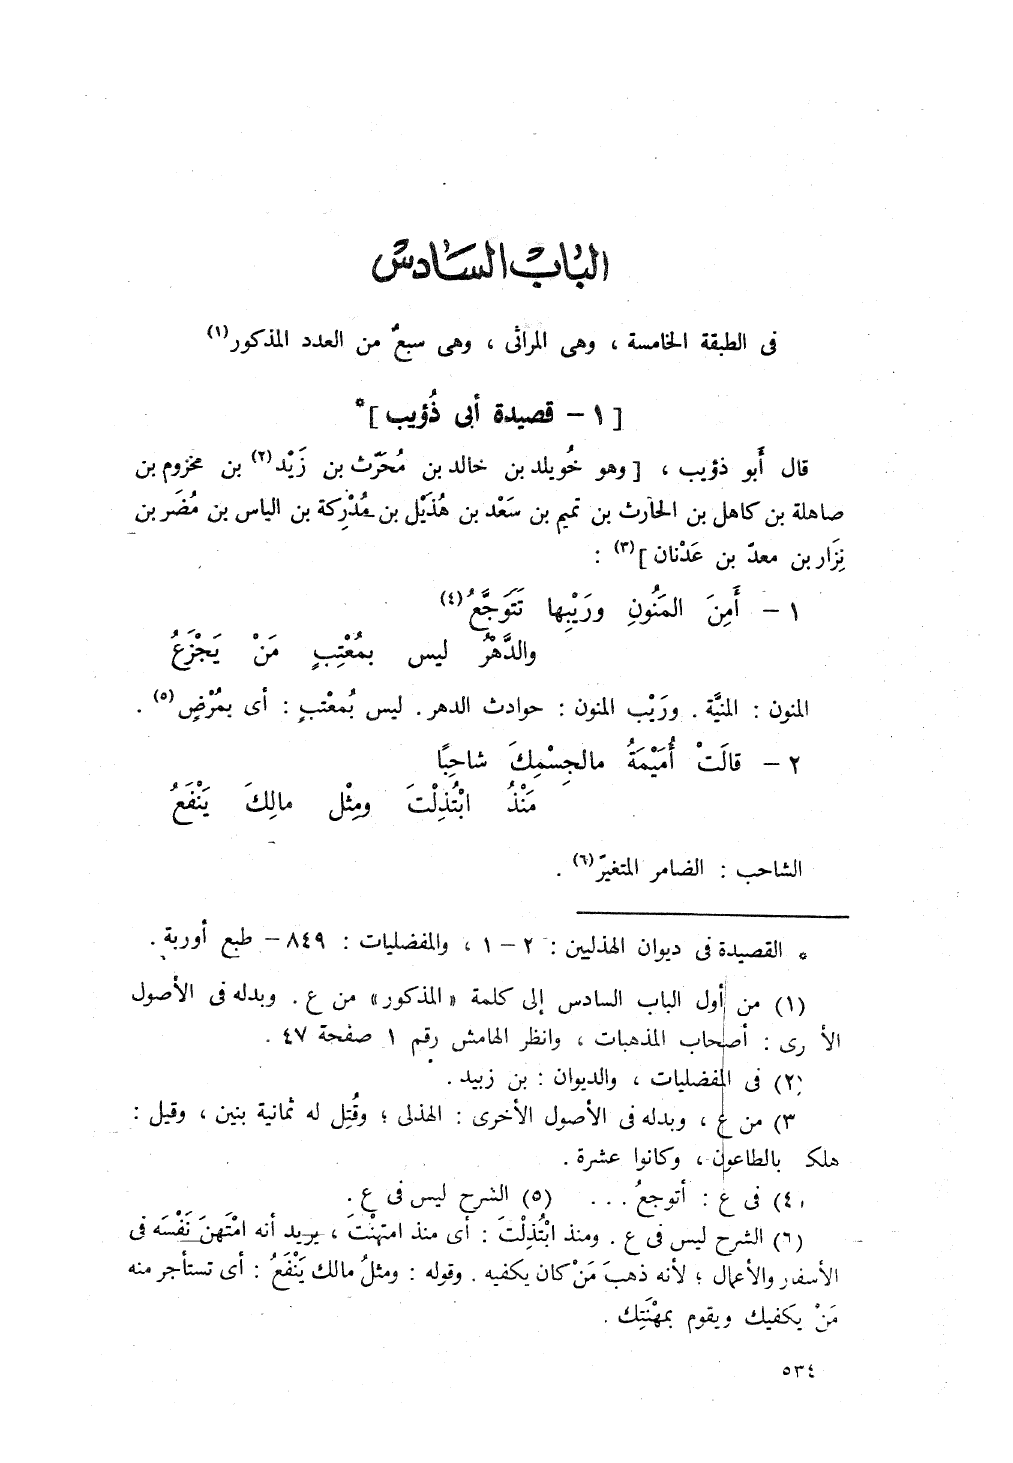 الباب السادس
فى الطبقة الخامسة ، وهى المراثى ، وهى سبعٌ من العدد المذكور(١)
[ ١ – قصيدة أبى ذُؤيب ]*
قال أَبو ذؤيب ، [ وهو خُويلد بن خالد بن مُحَرِّث بن زَيْد(٢) بن مخزوم بن
صاهلة بن كاهل بن الحارث بن تميم بن سَعْد بن هُذَيْل بن مُدْرِكة بن الياس بن مُضَر بن
نِزَار بن معدّ بن عَدْنان ](٣) :
١ – أَمِنَ المَنُونِ ورَيْبِها تَتَوَجَّعُ(٤)
والدَّهْرُ ليس بمُعْتِبٍ مَنْ يَجْزَعُ
المنون : المنيَّة . ورَيْب المنون : حوادث الدهر . ليس بُمعْتبٍ : أى بمُرْضٍ(٥) .
٢ – قالَتْ أُمَيْمَةُ مالجِسْمِكَ شاحِبًا
مَنْذُ ابْتُذِلْتَ ومِثْل مالِكَ يَنْفَعُ
الشاحب : الضامر المتغيرّ(٦) .
* القصيدة فى ديوان الهذليين : ٢ – ١ ، والمفضليات : ٨٤٩ – طبع أوربة .
(١) من أول الباب السادس إلى كلمة « المذكور » من ع . وبدله فى الأصول
الأ رى : أصحاب المذهبات ، وانظر الهامش رقم ١ صفحة ٤٧ .
(٢) فى المفضليات ، والديوان : بن زبيد .
٣) من ع ، وبدله فى الأصول الأخرى : الهذلى ؛ وقُتِل له ثمانية بنين ، وقيل :
هلك بالطاعون ، وكانوا عشرة .
٤) فى ع : أتوجعُ . . . (٥) الشرح ليس فى ع .
(٦) الشرح ليس فى ع . ومنذ ابْتُذِلْتَ : أى منذ امتهنْتَ ، يريد أنه امْتَهنَ نَفْسَه فى
الأسفار والأعمال ؛ لأنه ذهبَ مَنْ كان يكفيه . وقوله : ومثلُ مالك يَنْفَعُ : أى تستأجر منه
مَنْ يكفيك ويقوم بمهْنَتِك .
٥٣٤